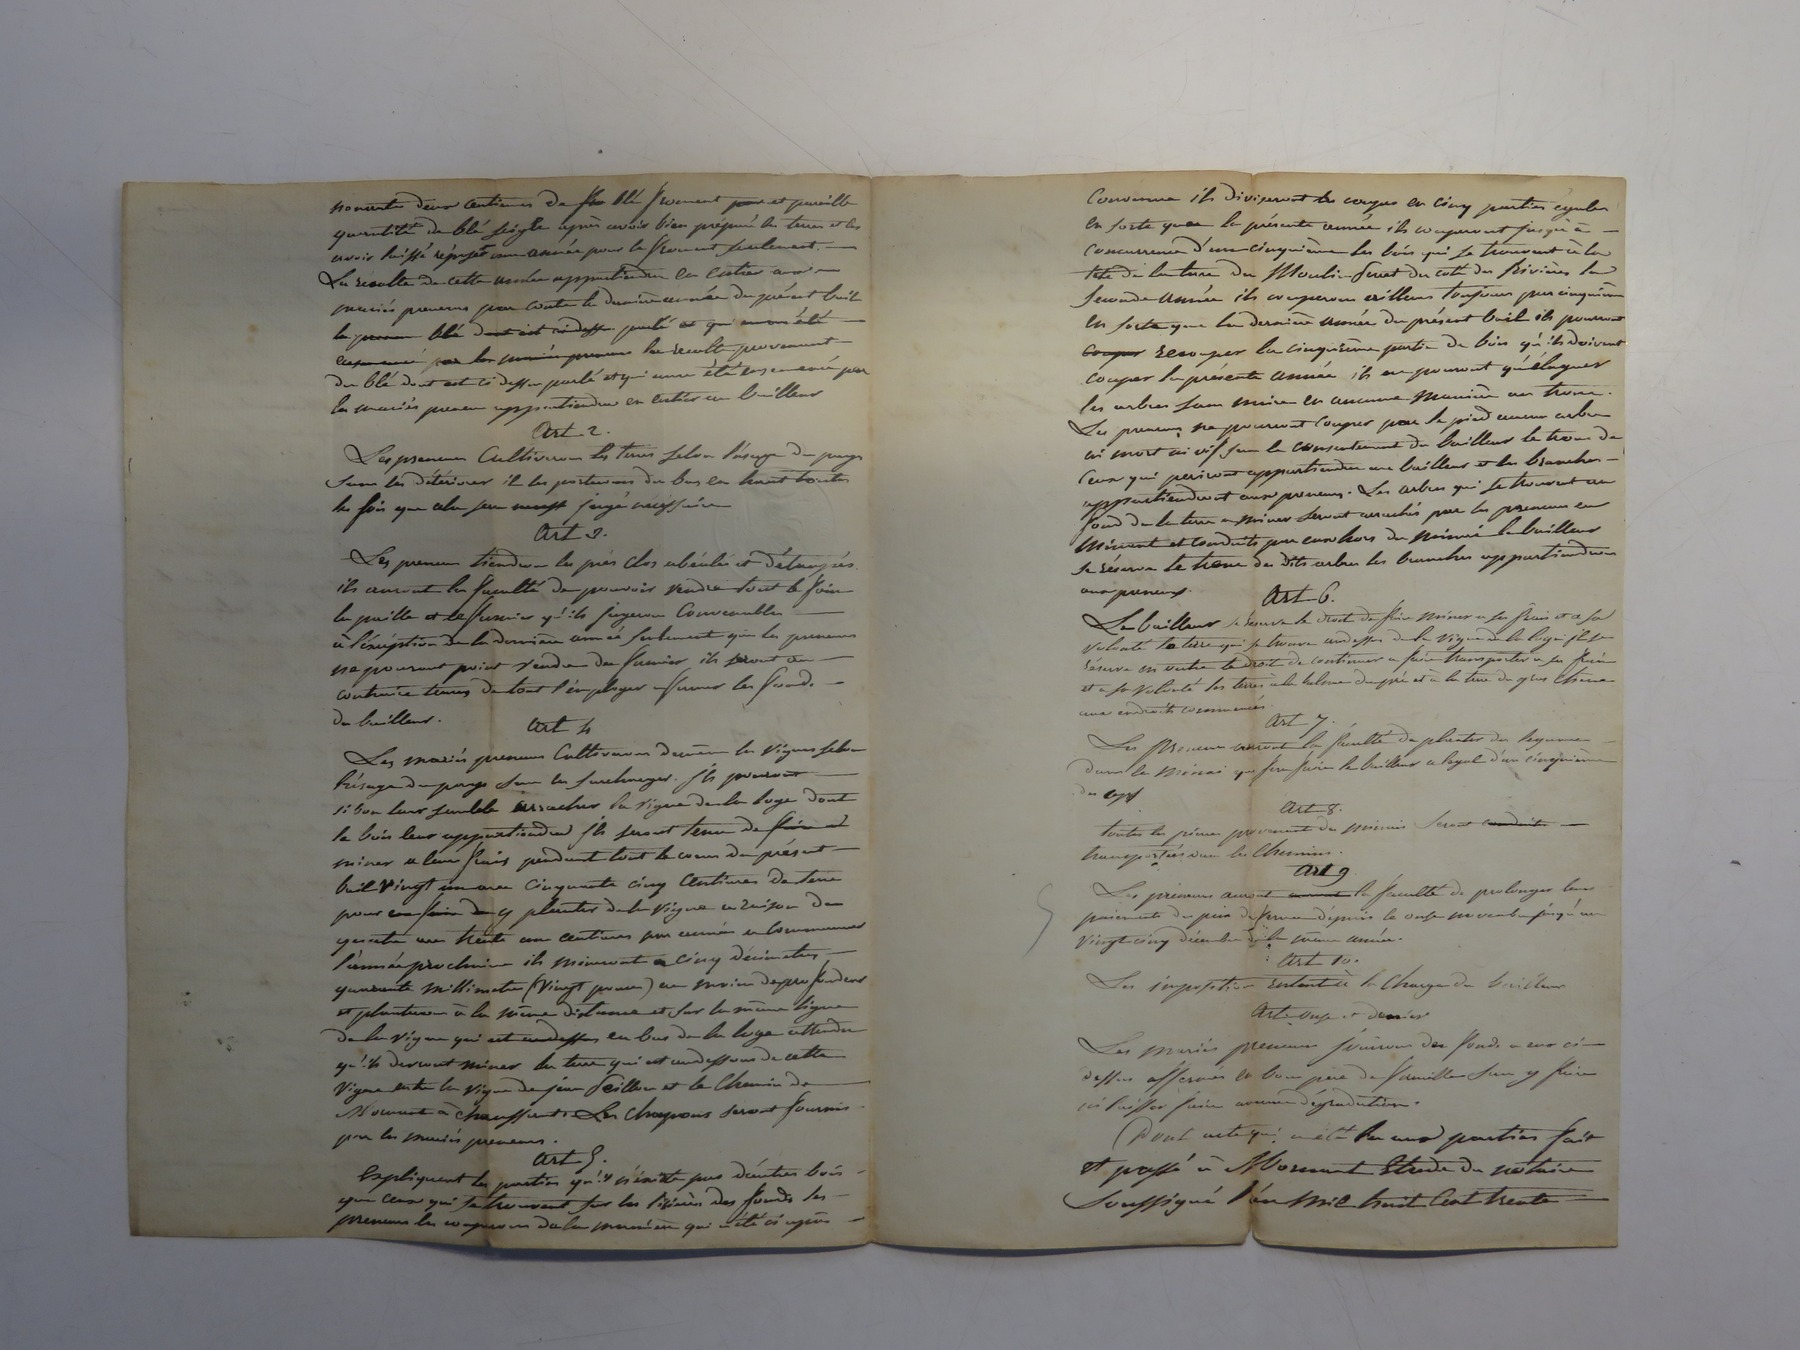 nonante deux centiares de blé froment et pareille
quantité de blé seigle après avoir bien préparé les terres et les
avoir laissé reposer une année pour le froment seulement.
La récolte de cette année appartiendra en entier aux
mariés preneurs par contre la dernière année du présent bail
le blé dont est ci dessus parlé et qui aura été
ensemencé par les mariés preneurs la récolte provenant
du blé dont est ci dessus parlé et qui aura été ensemencé par
les mariés preneurs appartiendra en entier au bailleur
Art 2.
Les preneurs Cultiveront les terres selon l'usage du pays
sans les détériorer il les porteront du bas en haut toutes
les fois que cela sera jugé nécessaire
Art 3.
Les preneurs tiendront les prés clos abéalés et détaupés
ils auront la faculté de pouvoir vendre tout le foin
la paille et le fumier qu'ils jugeront Convenable
à l'éxception de la dernière année seulement que les preneurs
ne pourront point vendre du fumier, ils seront au
contraire tenus de tout l'employer a fumer les fonds
du bailleur.
Art 4
Les mariés preneurs Cultiveront de même les Vignes selon
l'usage du pays sans les surcharger. Ils pourront
si bon leur semble arracher la vigne de la loge dont
le bois leur appartiendra ils seront tenus de faire et
miner a leurs frais pendant tout le cours du présent
bail Vingt un are Cinquante cinq Centiares de terre
pour en faire de y planter de la Vigne a raison de
quatre are trente un centiares par année a Commencer
l'année prochaine ils mineront a Cinq décimetres
quarante millimetres (Vingt pouces) au moins de profondeur
et planteront à la même distance et sur la même ligne
de la Vigne qui est au dessus en bas de la loge attendu
qu'ils devront miner la terre qui est au dessous de cette
Vigne entre la Vigne de jean Seillon et le Chemin de
Mornant à Chaussant. Les Chapons seront fournis
par les mariés preneurs.
Art 5.
Expliquent les parties qu'il n'éxiste pas d'autres bois
que ceux qui se trouvent sur les lisières des fonds les
preneurs les couperont de la manière qui a été ci après
Convenue ils diviseront les coupes en Cinq parties égales
en sorte que la présente année ils couperont jusqu'à
concurrence d'un cinquième les bois qui se trouvent à la
tête de la terre du Moulin Seret du coté des Rivières la
seconde année ils couperont ailleurs toujours par cinquième
en sorte que la dernière année du présent bail ils pourront
couper recouper la cinquième partie de bois qu'ils doivent
couper la présente année ils ne pourront qu'élaguer
les arbres sans nuire en aucune manière au tronc.
Les preneurs ne pourront Couper par le pied aucun arbre
ni mort ni vif sans le consentement du bailleur le tronc de
Ceux qui périront appartiendra au bailleur et les branches
appartiendront aux preneurs. Les arbres qui se trouvent au
fond de la terre a miner seront arrachés par les preneurs en
minant et conduits par eux hors du minai le bailleur
se réserve le tronc des dits arbres les branches appartiendront
aux preneurs.
Art 6.
Le bailleur se réserve le droit de faire miner a ses frais et a sa
volonté la terre qui se trouve au dessus de la Vigne de la loge il se
réserve en outre le droit de continuer a faire transporter a ses frais
et a sa volonté les terres à la du pré et à la terre du gros Chêne
aux endroits commencés
Art 7.
Les Preneurs auront la faculté de planter des legumes
dans le minai que fera faire le bailleur a l'égal d'un cinquième
des
Art 8.
toutes les pierres provenant des minais seront conduites
transportées sur les Chemins.
Art 9
Les preneurs auront la faculté de prolonger leur
paiements du prix de ferme depuis le onze novembre jusqu'au
Vingt cinq décembre de la même année.
Art 10.
Les imposition seront à la Charge du bailleur
Art onze et dernier
Les mariés preneurs jouiront des fonds a eux ci
dessus affermés en bon père de famille sans y faire
ni laisser faire aucune dégradation.
Dont acte qui a été lu aux parties fait
et passé à Mornant Etude du notaire
Soussigné l'an mil huit Cent trente